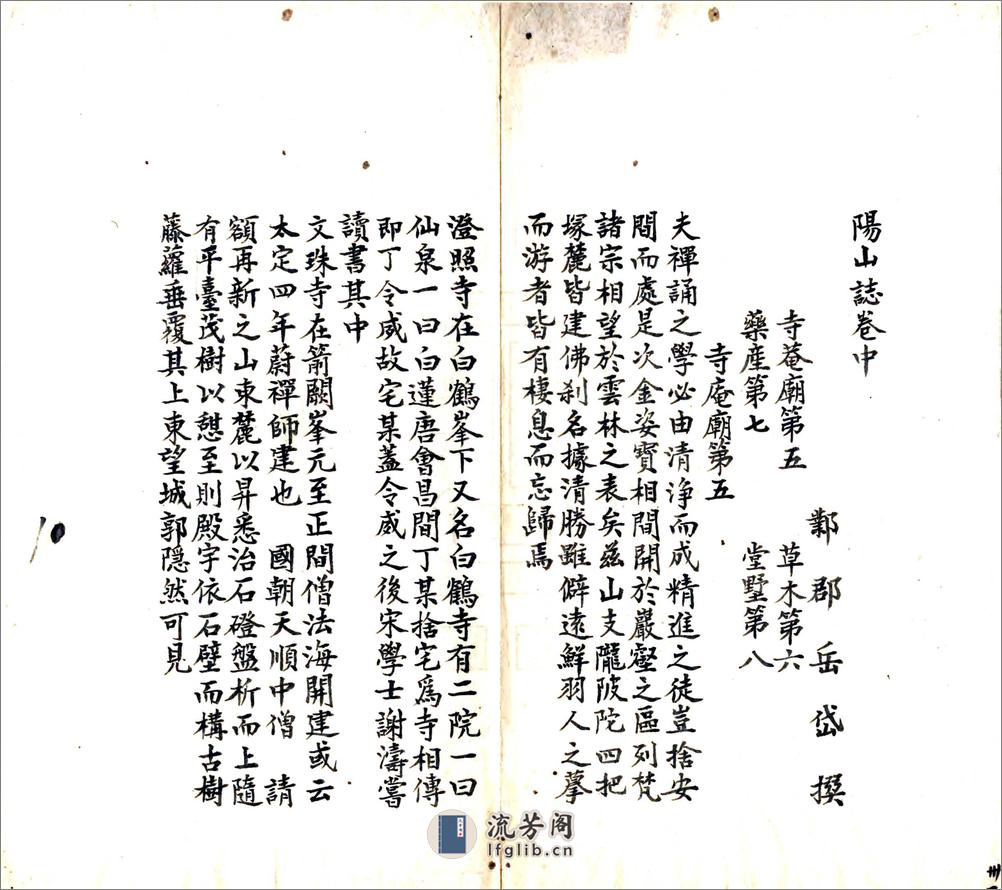 陽山誌卷中
鄴郡岳岱撰
寺菴廟第五 草木第六
藥産第七 堂墅第八
寺庵廟第五
夫禪誦之學必由清净而成精進之徒豈捨安
閒而處是次金姿寶相間開於巖壑之區列梵
諸宗相望於雲林之表矣兹山支隴陂陀四把
塚麓皆建佛刹名據清勝雖僻遠鮮羽人之摹
而游者皆有棲息而忘歸焉
澄照寺在白鶴峯下又名白鶴寺有二院一曰
仙泉一曰白蓮唐會昌間丁某捨宅爲寺相傳
即丁令威故宅某蓋令威之後宋學士謝濤嘗
讀書其中
文珠寺在箭闕峯元至正間僧法海開建或云
太定四年蔚禪師建也 國朝天順中僧 請
額再新之山東麓以昇悉治石磴盤析而上隨
有平臺茂樹以憇至則殿宇依石壁而構古樹
藤蘿垂覆其上東望城郭隱然可見
10
流芳阁
lfglib.cn